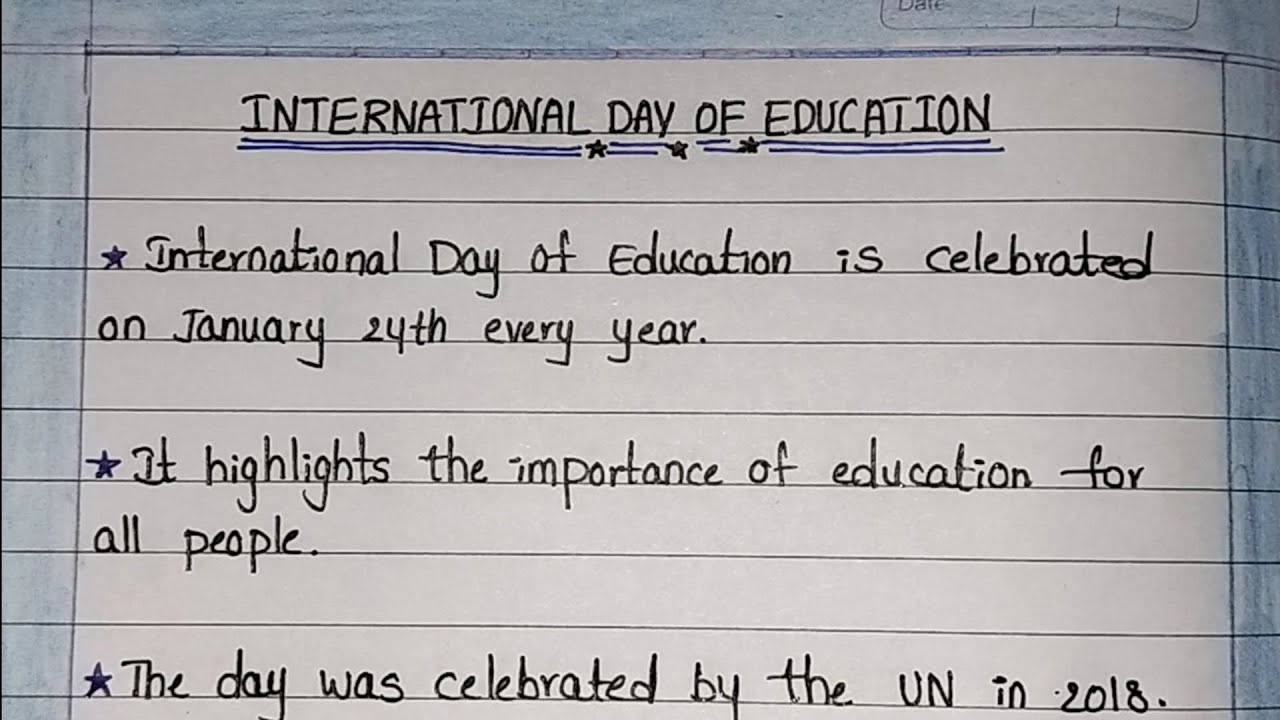 Date
INTERNATIONAL DAY OF EDUCATION
★ International Day of Education is celebrated
on January 24th every year.
★ It highlights the importance of education for
all people.
★ The day was celebrated by the UN in 2018.